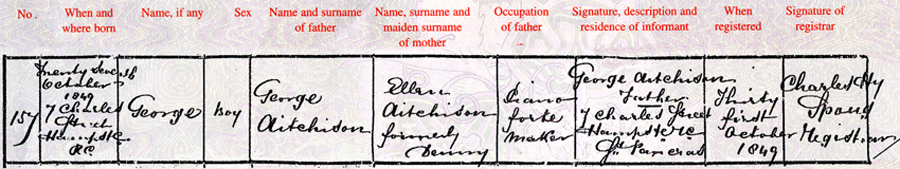 No.
When and
where born
Name, if any
Sex
Name and surname
of father
Name, surname and
maiden surname
of mother
Occupation
of father
Signature, description and
residence of informant
When
registered
Signature of
registrar
157
Twenty Seventh
October
1849
7 Charles
Street
George
Boy
George
Aitchison
Ellen
Aitchison
formerly
Denny
Piano
forte
Maker
George Aitchison
Father
7 Charles Street
St Pancras
Thirty
first
October
1849
Charles Hy
Registrar